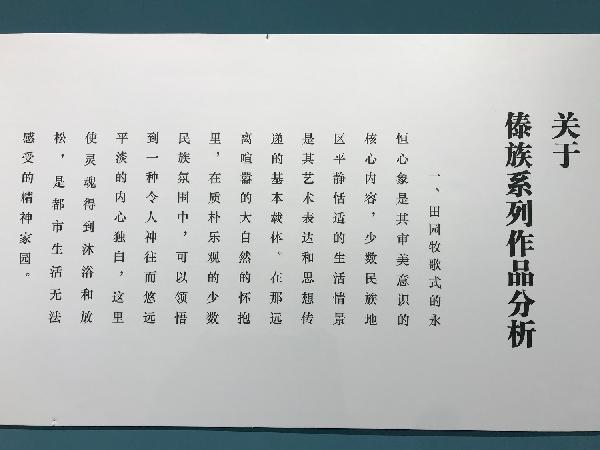 关于
傣族系列作品分析
一、田园牧歌式的永
恒心象是其审美意识的
核心内容，少数民族地
区平静恬适的生活情景
是其艺术表达和思想传
递的基本载体。在那远
离喧嚣的大自然的怀抱
里，在质朴乐观的少数
民族氛围中，可以领悟
到一种令人神往而悠远
平淡的内心独白，这里
使灵魂得到沐浴和放
松，是都市生活无法
感受的精神家园。